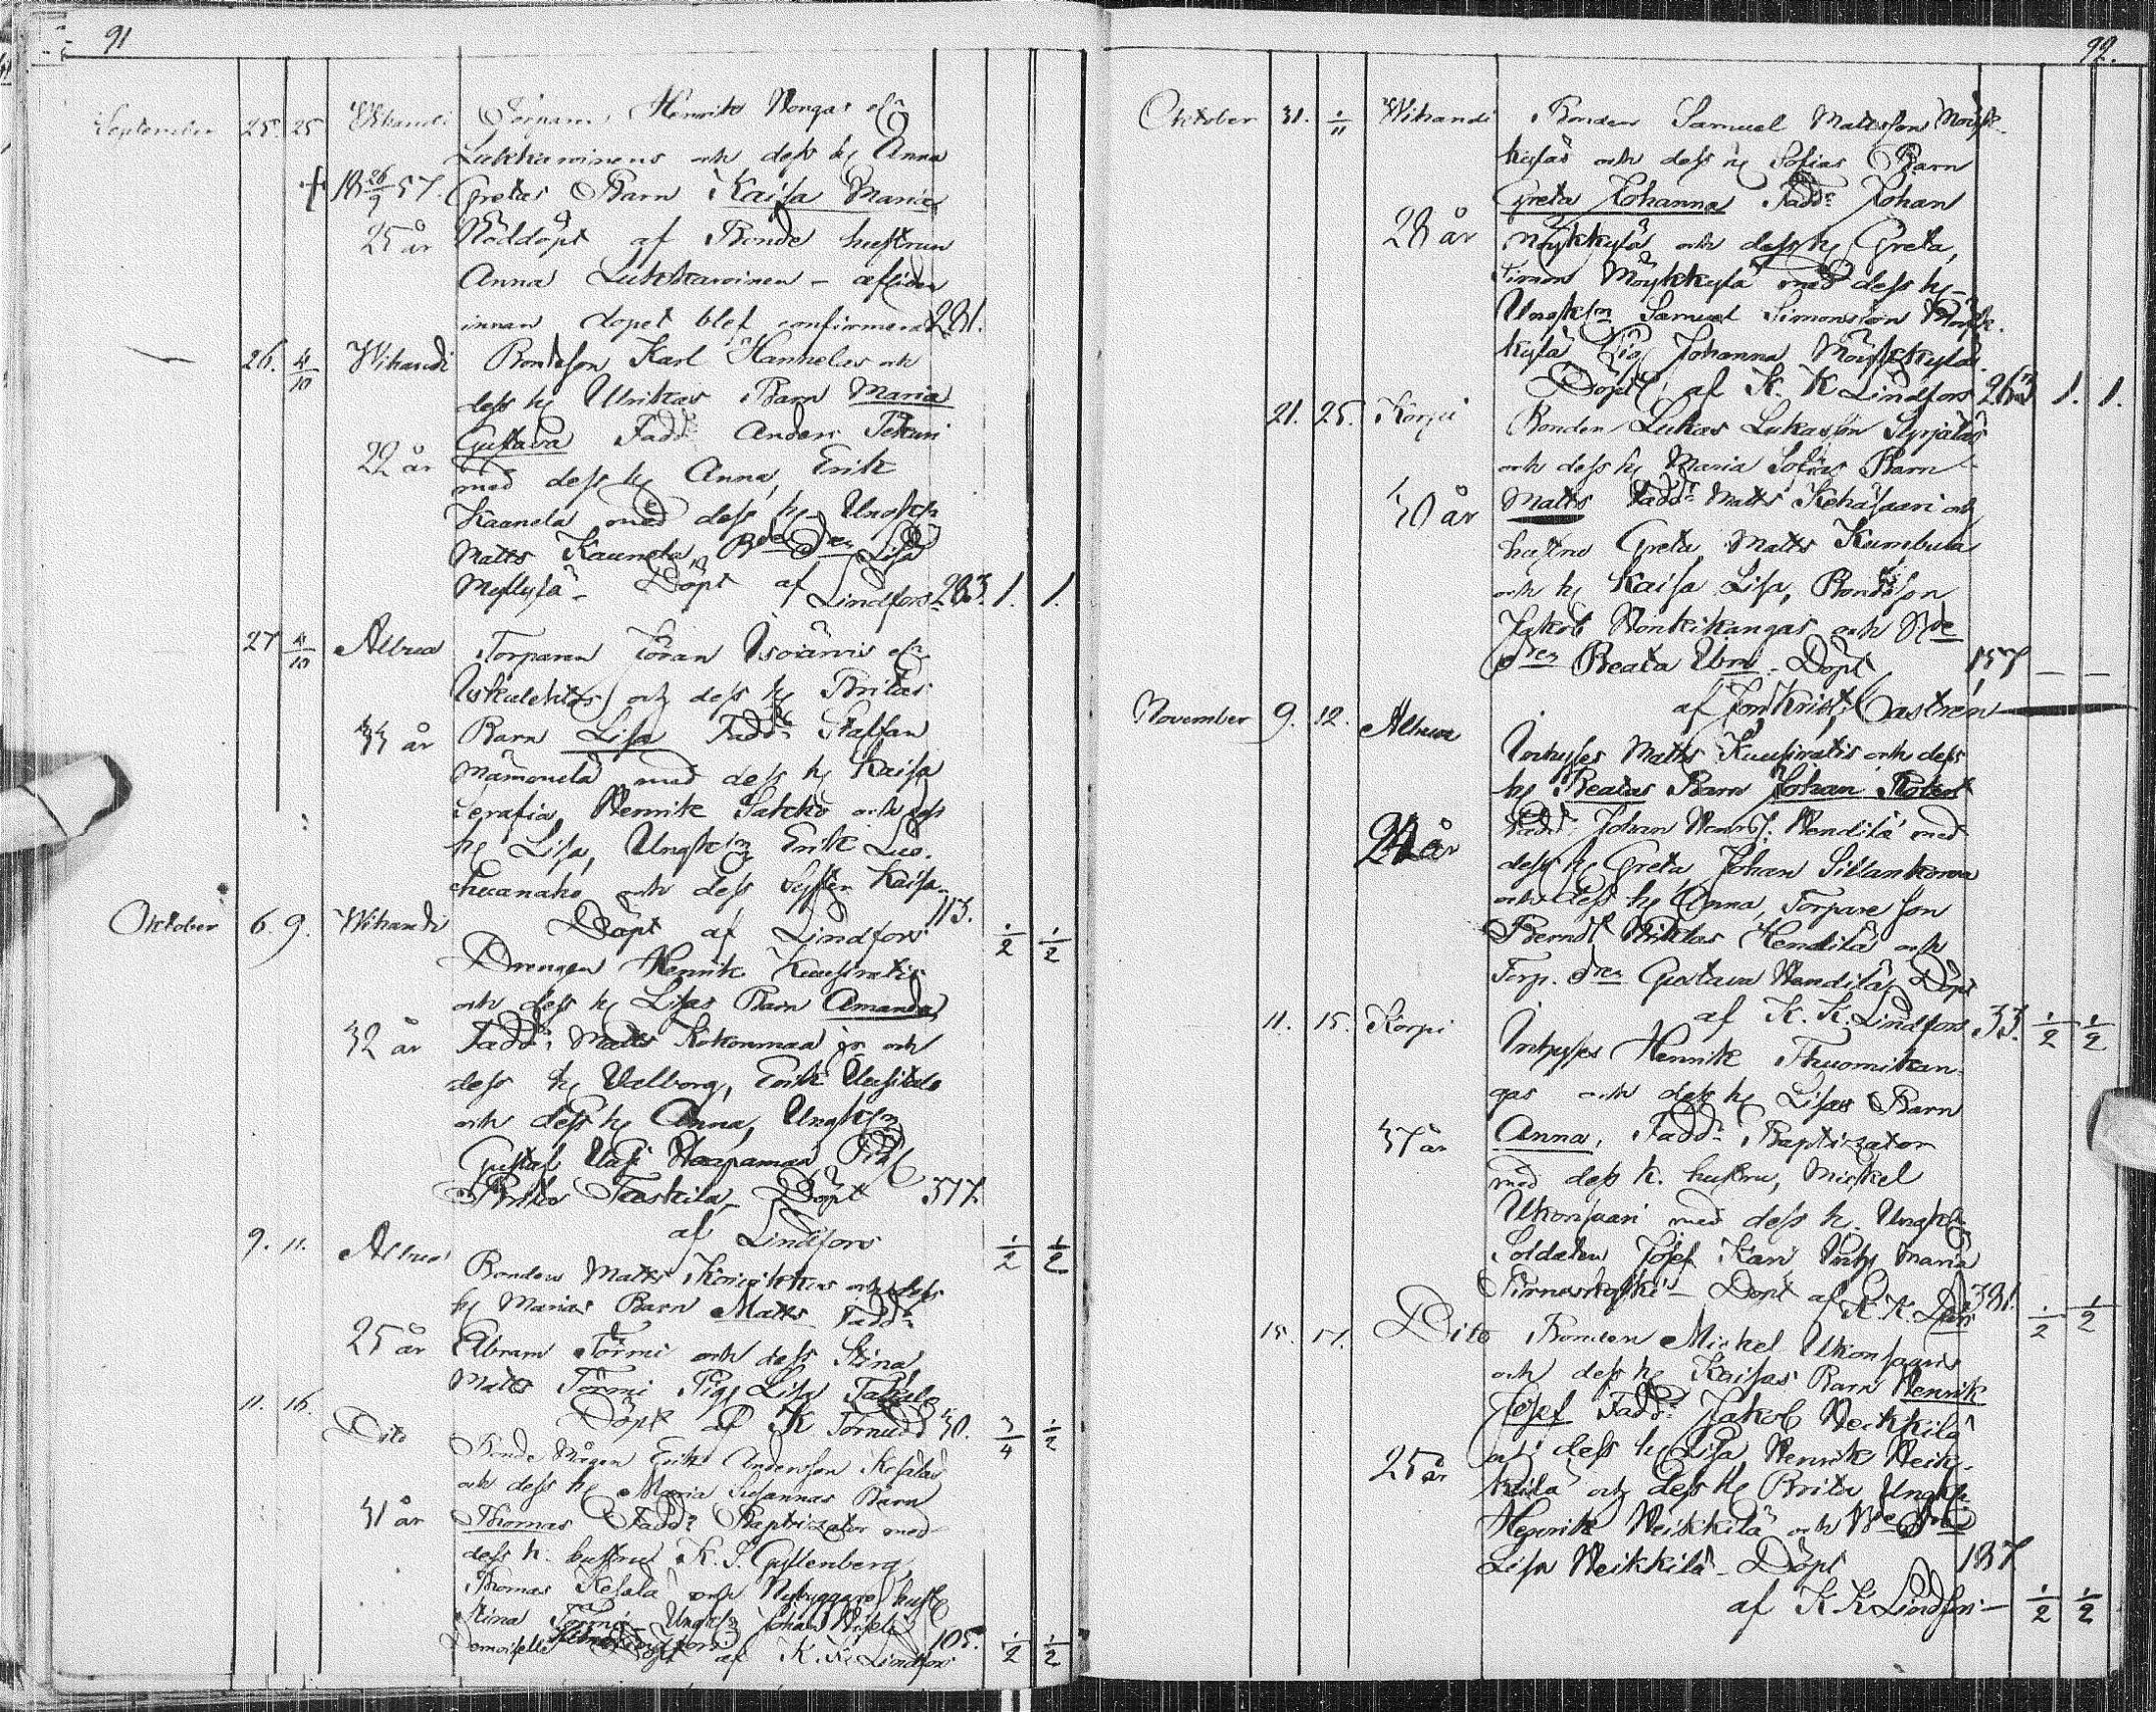 91
September 25. 25 Wihandi Torparen Henrik Kongas el
Lukkaroinens och dess h. Anna
† 18 26/9 57. Gretas Barn Kaisa Maria
25 år Nöddöpt af Bonde hustrun
Anna Lukkaroinen – afliden
innan dopet blef confirmerat 281.
26. 4/10 Wihandi Bondeson Karl Hanneles och
dess h. Ulrikas Barn Maria
Gustava Fadd: Anders Pekuri
22 år med dess h. Anna, Erik
Kaanela med dess h. Ungk
Matts Kaunela, Bde Dr Lisa
Myllylä – Döpt af Lindfors 283. 1. 1.
27 4/10 Albrua Torparen Göran Isojärvis el
och dess h. Britas
33 år Barn Lisa Fadd: Staffan
Mämmelä med dess h. Kaisa
Serafia, Henrik Sakko och dess
h. Lisa, Ungk Erik Luo-
huanaho och dess Syster Kaisa
113.
Oktober 6. 9. Wihandi Döpt af Lindfors 1/2 1/2
Drengen Henrik Kuusiratis
och dess h. Lisas Barn Amanda
32 år Fadd: Matts Kokonmaa jr och
dess h. Valborg, Erik Uusitalo
och dess h. Anna, Ungk
Gustaf Haapamaa Pig
Brita Taskila – Döpt 317.
af Lindfors
9. 11. Albrua 1/2 1/2
Bonden Matts och dess
h. Marias Barn Matts Fadd:
25 år Abram Törmi och dess Stina,
Matts Törmi Pig Lisa Takalo
Döpt af K Törnudd 30.
11. 16. Dito 3/4 1/2
Bonde Mågen Erik Andersson Kesäläs
och dess h. Maria Susannas Barn
31 år Thomas Fadd: Baptizator med
dess k. hustru K. S. Gyllenberg,
Thomas Kesälä och Nybyggare hust
Stina Törmi – Ungk Johan
Demoiselle Döpt af K. K. Lindfors 105. 1/2 1/2
92.
Oktober 31. 1/11 Wihandi Bonden Samuel Mattsson Möyk-
kyläs och dess h. Sofias Barn
Greta Johanna Fadd: Johan
28 år Möykkylä och dess h. Greta,
Simon Möykkylä med dess h –
Ungk Samuel Simonsson Möyk-
kylä, Pig Johanna Möykkylä
Döpt af K. K Lindfors 263 1. 1.
21. 25. Korpi Bonden Lukas Lukasson Syrjäläs
och dess h. Maria Sofias Barn
30 år Matts Fadd: Matts Kehäsaari och
hustru Greta, Matts Kumbula
och h. Kaisa Lisa, Bondeson
Jakob Honkikangas och Bde
dr Beata Ubm. Döpt 157 – –
af Jon Krist. Castrén
November 9. 12. Albrua
Inhyses Matts Kuusiratis och dess
h. Beatas Barn Johan Robert
Fadd: Johan Henrs: Hendilä med
24 år dess h. Greta Johan Sillankorva
och dess h. Anna, Torpare son
Berndt Niklas Hendilä och
Torp. dr Gustava Hendilä, Döpt
af K. K. Lindfors 33. 1/2 1/2
11. 15. Korpi
Inhyses Henrik Thuomikan-
gas och dess h. Lisas Barn
37 år Anna, Fadd: Baptizator
med dess k. hustru, Mickel
Ukonsaari med dess h. Ungk
Soldaten Josef Kari Inhy Maria
Döpt af K. K. 381. 1/2 1/2
15. 17. Dito Bonden Mickel Ukonsaaris
och dess h. Kaisas Barn Henrik
Josef Fadd: Jakob Heikkilä
och dess h. Lisa, Henrik Heik-
25 år kilä och dess h. Brita Ungk
Henrik Heikkilä och Bde Dr
Lisa Heikkilä – Döpt 187
af K K Lindfors – 1/2 1/2